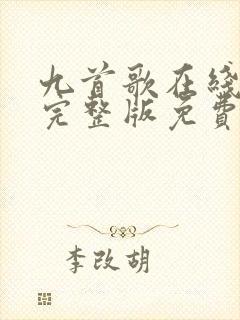 九首歌在线
完整版免费
李改胡